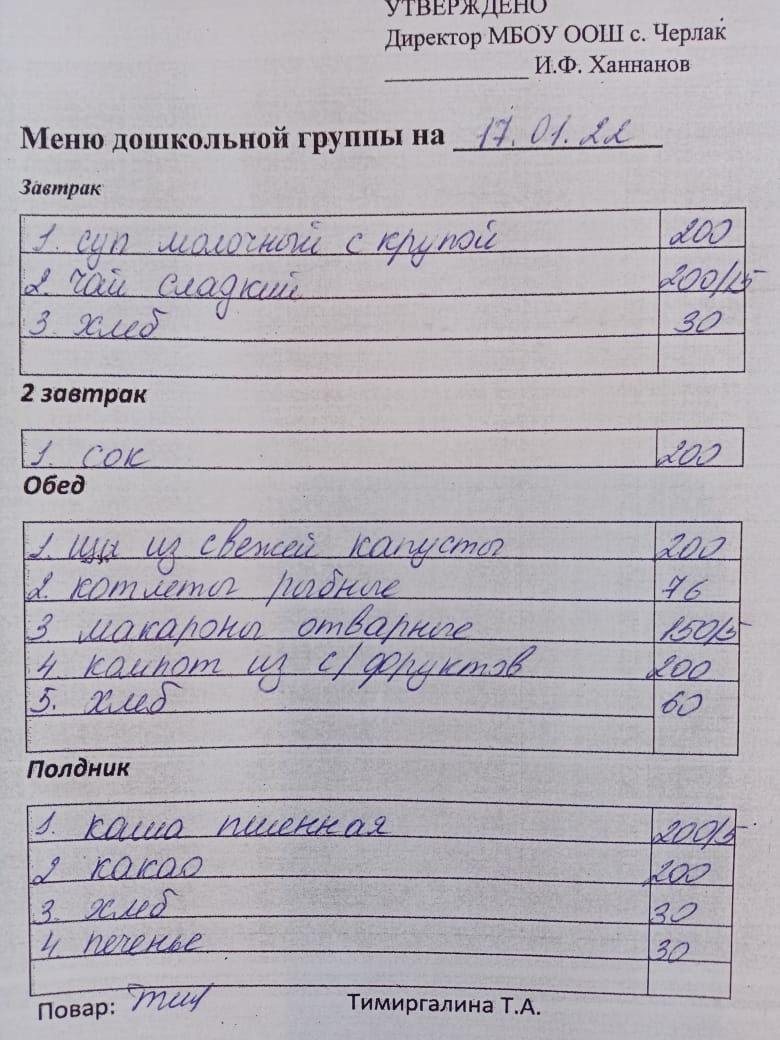 УТВЕРЖДЕНО
Директор МБОУ ООШ с. Черлак
____________ И.Ф. Ханнанов
Меню дошкольной группы на 17.01.22
Завтрак
1. суп молочный с крупой 200
2. чай сладкий 200/15
3. хлеб 30
2 завтрак
1. сок 200
Обед
1. щи из свежей капусты 200
2. котлеты рыбные 76
3 макароны отварные 150/5
4 компот из с/фруктов 200
5. хлеб 60
Полдник
1. каша пшенная 200/5
2 какао 200
3. хлеб 30
4. печенье 30
Повар: Тимиргалина Т.А.